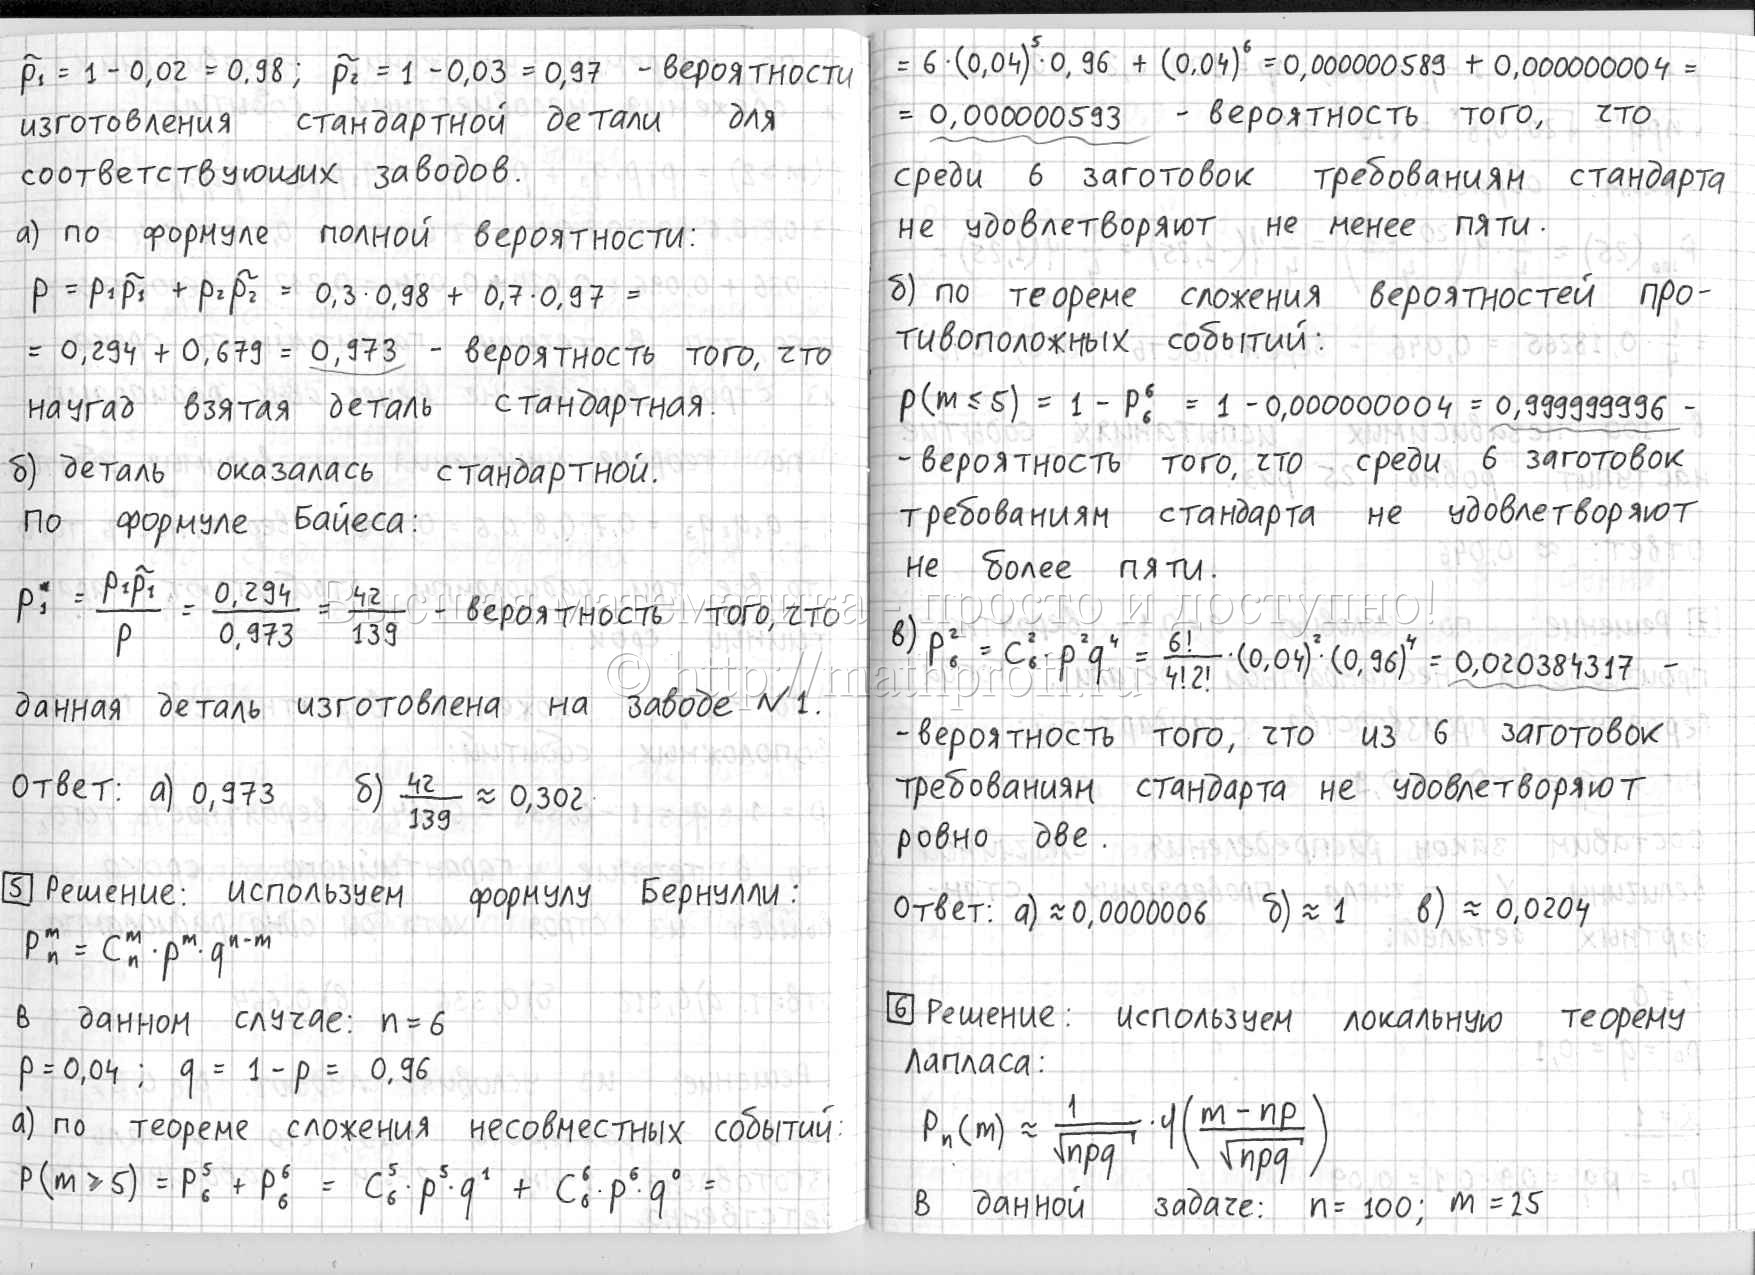 p̃₁ = 1 - 0,02 = 0,98; p̃₂ = 1 - 0,03 = 0,97 - вероятности
изготовления стандартной детали для
соответствующих заводов.
а) по формуле полной вероятности:
p = p₁p̃₁ + p₂p̃₂ = 0,3·0,98 + 0,7·0,97 =
= 0,294 + 0,679 = 0,973 - вероятность того, что
наугад взятая деталь стандартная.
б) деталь оказалась стандартной.
По формуле Байеса:
p₁* = p₁p̃₁/p = 0,294/0,973 = 42/139 - вероятность того, что
данная деталь изготовлена на заводе №1.
Ответ: а) 0,973 б) 42/139 ≈ 0,302.
5 Решение: используем формулу Бернулли:
Pₙᵐ = Cₙᵐ · pᵐ · qⁿ⁻ᵐ
В данном случае: n=6
p=0,04; q = 1-p = 0,96
а) по теореме сложения несовместных событий:
P(m≥5) = P₆⁵ + P₆⁶ = C₆⁵·p⁵·q¹ + C₆⁶·p⁶·q⁰ =
= 6·(0,04)⁵·0,96 + (0,04)⁶ = 0,000000589 + 0,000000004 =
= 0,000000593 - вероятность того, что
среди 6 заготовок требованиям стандарта
не удовлетворяют не менее пяти.
б) по теореме сложения вероятностей про-
тивоположных событий:
P(m≤5) = 1 - P₆⁶ = 1 - 0,000000004 = 0,999999996 -
- вероятность того, что среди 6 заготовок
требованиям стандарта не удовлетворяют
не более пяти.
в) P₆² = C₆²·p²q⁴ = 6!/4!2! · (0,04)²·(0,96)⁴ = 0,020384317 -
- вероятность того, что из 6 заготовок
требованиям стандарта не удовлетворяют
ровно две.
Ответ: а) ≈ 0,0000006 б) ≈ 1 в) ≈ 0,0204
6 Решение: используем локальную теорему
Лапласа:
Pₙ(m) ≈ 1/√npq · φ((m - np)/√npq)
В данной задаче: n = 100; m = 25
Высшая математика - просто и доступно!
© http://mathprofi.ru